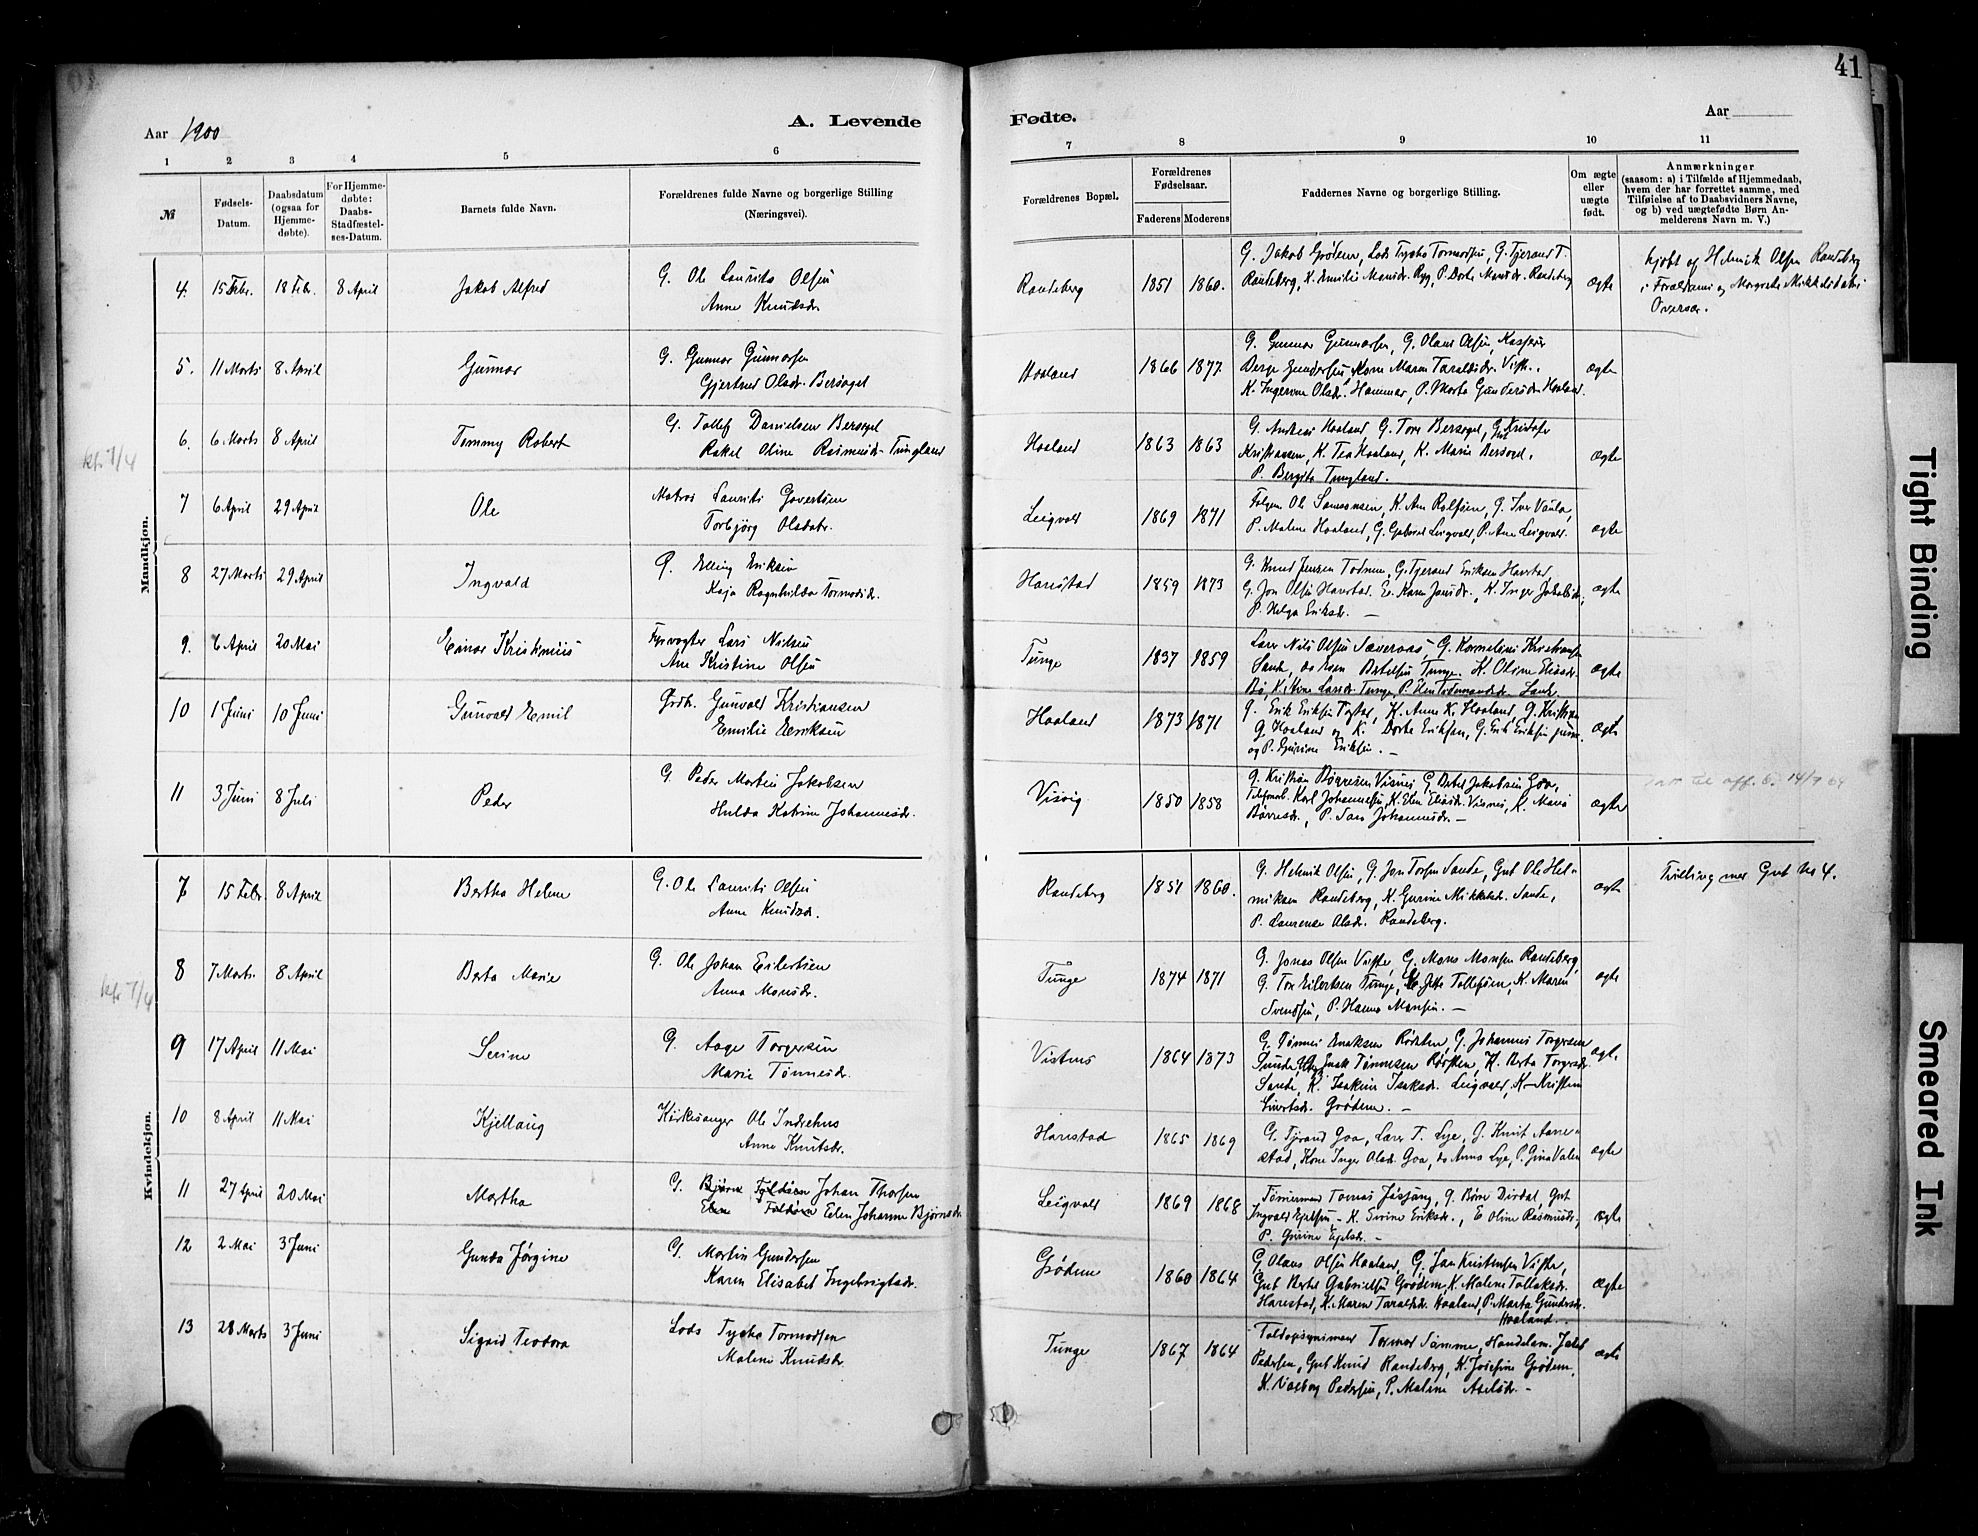 41
Aar 1900
A. Levende
Fødte.
Aar
1 2 3 4 5 6 7 8 9 10 11
No
Fødsels-Datum.
Daabsdatum (ogsaa for Hjemme-døbte).
For Hjemme-døbte: Daabs-Stadfæstel-ses-Datum.
Barnets fulde Navn.
Forældrenes fulde Navne og borgerlige Stilling (Næringsvei).
Forældrenes Bopæl.
Forældrenes Fødselsaar.
Faderens Moderens
Faddernes Navne og borgerlige Stilling.
Om ægte eller uægte født.
Anmærkninger
(saasom: a) i Tilfælde af Hjemmedaab, hvem der har forrettet samme, med Tilføielse af to Daabsvidners Navne, og b) ved uægtefødte Børn Anmelderens Navn m. V.)
Mandkjøn.
4. 15 Febr. 18 Febr. 8 April Jakob Alfred G. Ole Laurits Olsen
Anne Knutsdr.
Randeberg 1851 1860. G. Jakob Grødem, Lods Tycho Tormodsen, G. Tjerand T.
Randeberg, K. Emilie Monsdr. Ryg, P. Dorte Monsdr. Randeberg ægte
hjdbt af Helmik Olsen Randeberg
5. 11 Marts 8 April Gunnar G. Gunnar Gunnarsen
Gjertrud Olsdr. Bersagel
Haaland 1866 1877 G. Gunnar Gunnarsen, G. Olaus Olsen,
K. Ingeborg Olsdr. Hammer, P. Marta Gundersdr. Haaland. ægte
6. 6 Marts 8 April Tommy Robert G. Tollef Danielsen Bersagel
Rakel Oline Rasmusdr. Tungland
Haaland 1863 1863 G. Andreas Haaland G. Tore Bersagel,
Kristiansen, K. Tea Haaland, K. Marie Bersagel,
P. Bergita Tungland. ægte
kfr 7/4
7 6 April 29 April Ole Matros Laurits Govertsen
Torbjørg Olsdatr.
Leigvold 1869 1871 Ole Samsonsen, K. Ane Rolfsen, G. Iver Vaula,
P. Malene Haaland, G. Gabriel Leigvold, P. Ane Leigvold. ægte
8 27 Marts 29 April Ingvald G. Elling Eriksen
Kaja Ragnhilda Tormodsdr.
Harestad 1859 1873 G. Knud Jensen Todnem, G. Tjerand Eriksen Harestad,
G. Jon Olsen Harestad. E. Karen Jonsdr., K. Inger Jakobsdr.,
P. Helga Eriksdr. — ægte
9. 6 April 20 Mai Einar Kristinius Fyrvogter Lars Nilsen
Ane Kristine Olsen
Tunge 1837 1859 Lærer Nils Olsen G. Kornelius Kristiansen
Sande, do Sven Bertelsen Tunge. K. Oline Eliasdr.
Bø, K. Larsdr. Tunge, ægte
10 1 Juni 10 Juni Gunvald Emil Grdb. Gunvald Kristiansen
Emilie Eriksen
Haaland 1873 1871 G. Erik Eriksen K. Anne K. Haaland, G. Kristian
G. Haaland og K. Dorte Eriksen, G. Erik Eriksen jun.
og P. Gurine Eriksen. — ægte
11 3 Juni 8 Juli Peder G. Peder Martin Jakobsen
Hulda Katrine Johannesdr.
Viste 1850 1858 G. Kristian Børresen Visnes, G. Bertel Jakobsen Goa,
Karl Johannessen, K. Elen Eliasdr. Visnes, K. Maria
Børresdr., P. Sara Johannesdr. — ægte
14/7 64
Kvindekjøn.
7 15 Febr. 8 April Bertha Helene G. Ole Laurits Olsen
Anne Knudsdr.
Randeberg 1851 1860. G. Helmik Olsen, G. Jon Torsen Sande, Gut Ole Hel-
miksen Randeberg, K. Gurine Mikkelsdr. Sande,
P. Laurense Olsdr. Randeberg. ægte Tvilling med Gut No 4.
8 7 Marts. 8 April Berta Marie G. Ole Johan Eilertsen
Anna Monsdr.
Tunge 1874 1871 G. Jonas Olsen Viste, G. Mons Monsen Randeberg,
G. Tore Eilertsen Tunge, K. Jette Tollefsen, K. Maren
Svendsen, P. Hanna Monsen. — ægte
kfr 7/4
9 17 April 11 Mai Serine G. Aage Torgersen
Marie Tønnesdr.
Vistnes 1864 1873 G. Tønnes Enoksen Rødsten, G. Johannes Torgersen
Sunde, Enok Tønnesen Rødsten, K. Berta Torgersdr.
Sande, K. Isaksdr. Leigvold, K. Kristine
Grødem. — ægte
10 8 April 11 Mai Kjellaug Kirkesanger Ole Indrehus
Anne Knutsdr.
Harestad 1865 1869 G. Tjerand Goa, Lærer T. Lye, G. Knut Aare-
stad, Kone Inger Olsdr. Goa, do Anna Lye, P. Gina Valen ægte
11 27 April 20 Mai Martha G. Johan Thorsen
Elen Johanne Bjørnsdr.
Leigvold 1869 1868 Tømmermand Tomas Jøsjang, G. Børe Dirdal, Gut
Ingvald Egelsen — K. Serine Eriksdr., E. Oline Rasmusdr.,
P. Gurine Egelsdr. — ægte
12 2 Mai 3 Juni Gunda Jørgine G. Martin Gundersen
Karen Elisabet Ingebrigtsdr.
Grødem 1860 1864 G. Olaus Olsen Haaland, G. Jan Kristensen Viste,
Gut Bertel Gabrielsen Grødem, K. Malene Tollaksdr.
Harestad, K. Maren Taraldsdr. Haaland, P. Marta Gundersdr.
Haaland. ægte
13 28 Marts 3 Juni Sigrid Teodora Lods Tycho Tormodsen
Malene Knudsdr.
Tunge 1867 1864 Toldopsynsmand Tormod Sømme, Handelsm. Jakob
Pedersen, Gut Knud Randeberg, K. Josefine Grødem,
K. Valborg Pedersen, P. Malene Axelsdr. — ægte
Tight Binding
Smeared Ink